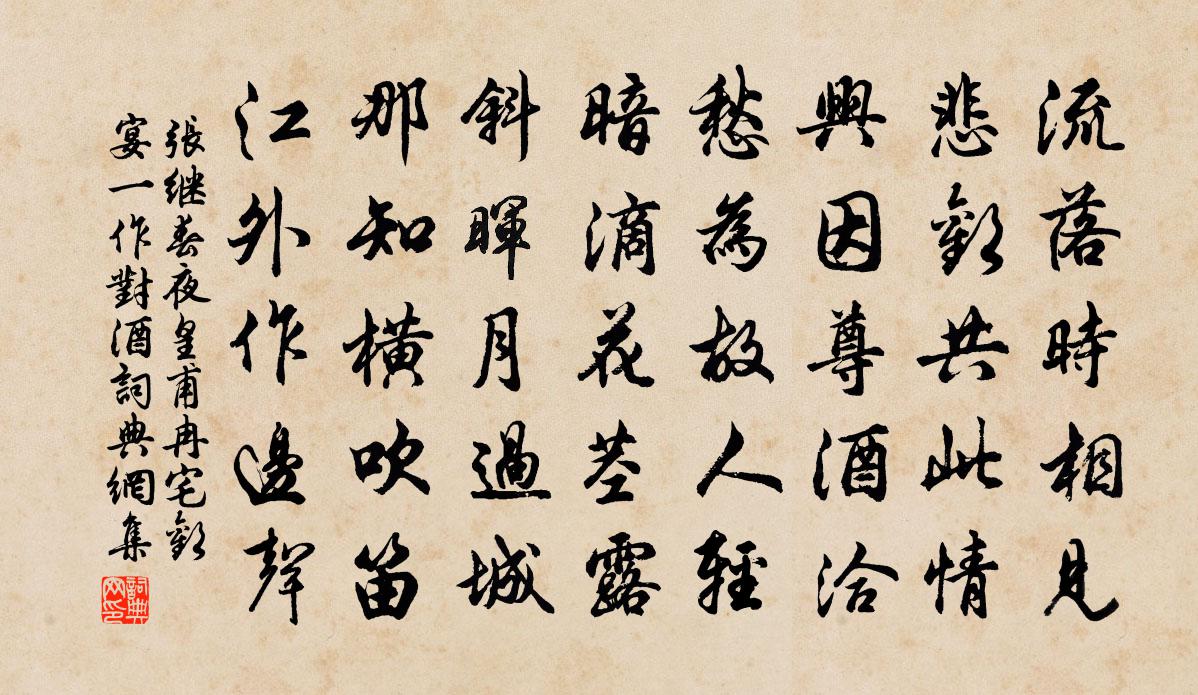 流落時相見
悲歡共此情
興因尊酒洽
愁為故人輕
暗滴花莖露
斜暉月過城
那知橫吹笛
江外作邊聲
張継春夜皇甫冉宅歡
宴一作對酒詞典網集
詞典网印